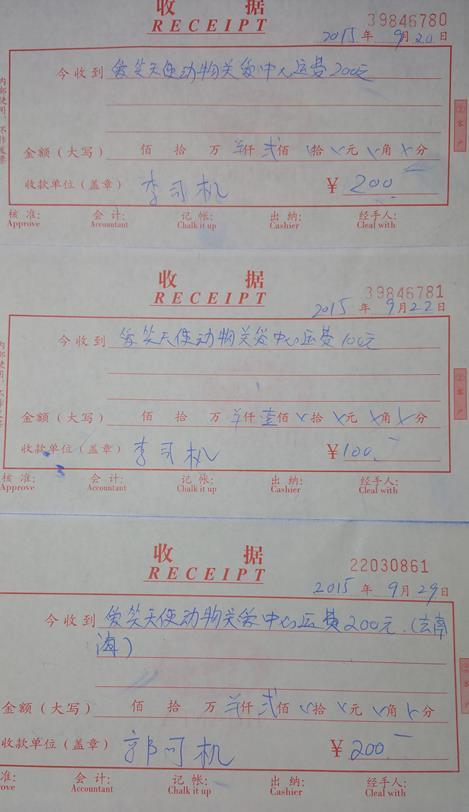 收 据
RECEIPT
39846780
2015 年 9 月 20 日
今收到 爱笑天使动物关爱中心运费200元
金额（大写） 佰 拾 万 仟 贰 佰 拾 元 角 分
收款单位（盖章） 李司机 ¥ 200.
核 准: 会 计: 记 帐: 出 纳: 经手人:
Approve Accountant Chalk it up Cashier Cleal with
收 据
RECEIPT
39846781
2015 年 9 月 22 日
今收到 爱笑天使动物关爱中心运费100元
金额（大写） 佰 拾 万 仟 壹 佰 拾 元 角 分
收款单位（盖章） 李司机 ¥ 100.
核 准: 会 计: 记 帐: 出 纳: 经手人:
Approve Accountant Chalk it up Cashier Cleal with
收 据
RECEIPT
22030861
2015 年 9 月 29 日
今收到 爱笑天使动物关爱中心运费200元.(去南
海)
金额（大写） 佰 拾 万 仟 贰 佰 拾 元 角 分
收款单位（盖章） 郭司机 ¥ 200.
准: 会 计: 记 帐: 出 纳: 经手人:
ove Accountant Chalk it up Cashier Cleal with